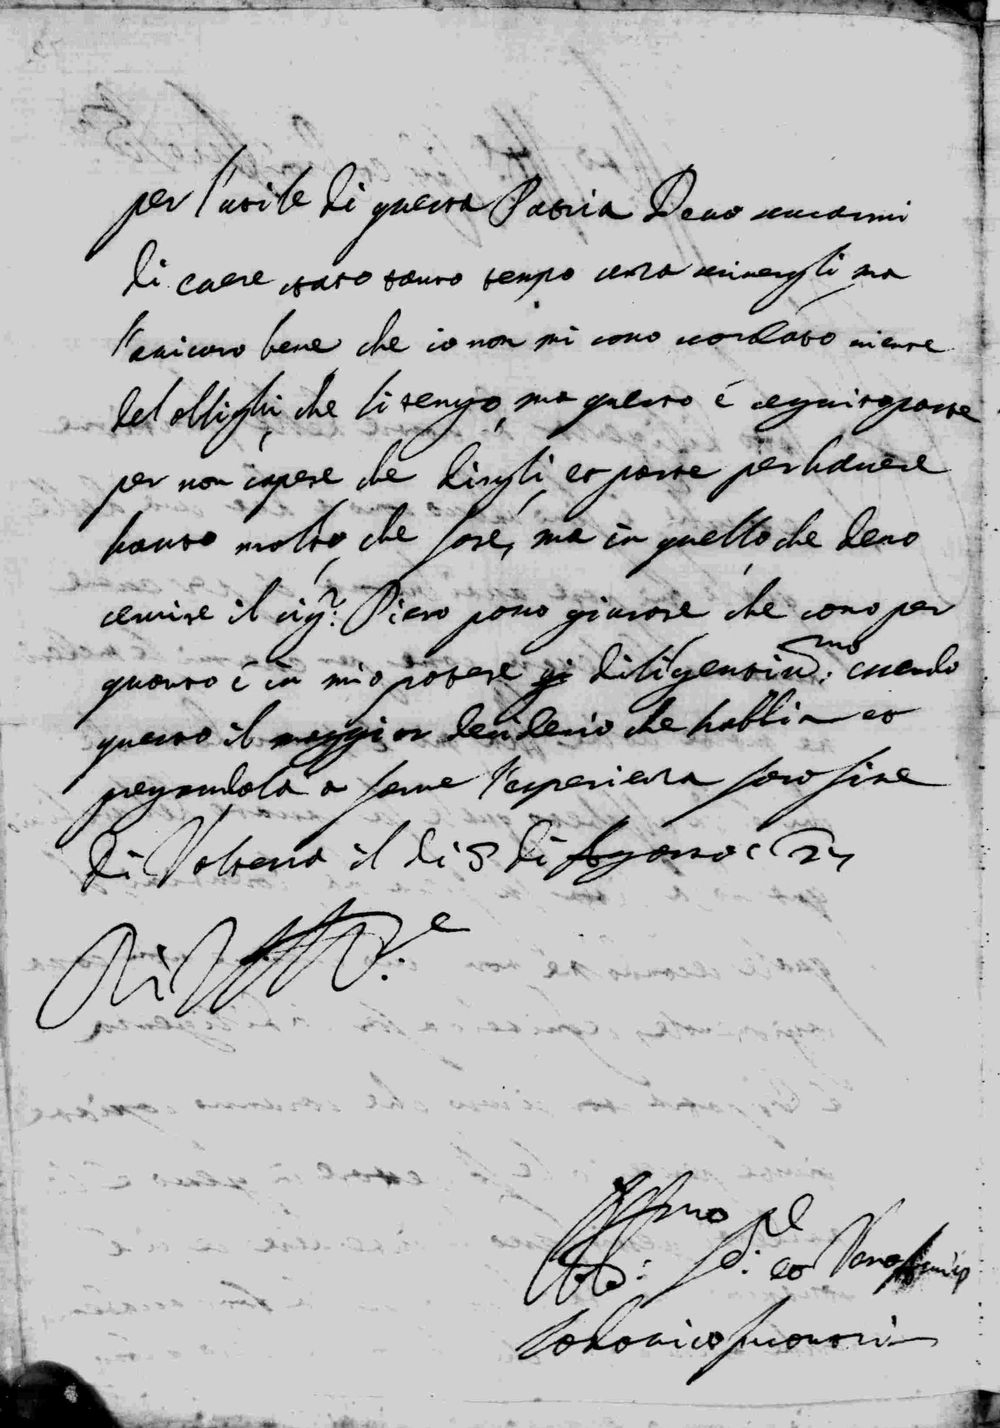 per l'utile di questa Patria Devo scusarmi
di essere stato tanto tempo senza scrivergli ma
l'assicuro bene che io non mi sono scordato niente
del oblighi, che li tengo, ma questo è seguito parte
per non sapere che dirgli, et parte per havere
hauto molto che fare, ma in quello che devo
servire il sig.r Piero posso giurare che sono per
quanto è in mio potere di diligentiss.mo essendo
questo il maggior desiderio che habbia et
pregandola a farne l'esperienza farò fine
Di Volterra il di 8 di
Di V.
Aff.mo
Obb.: et
Lodovico